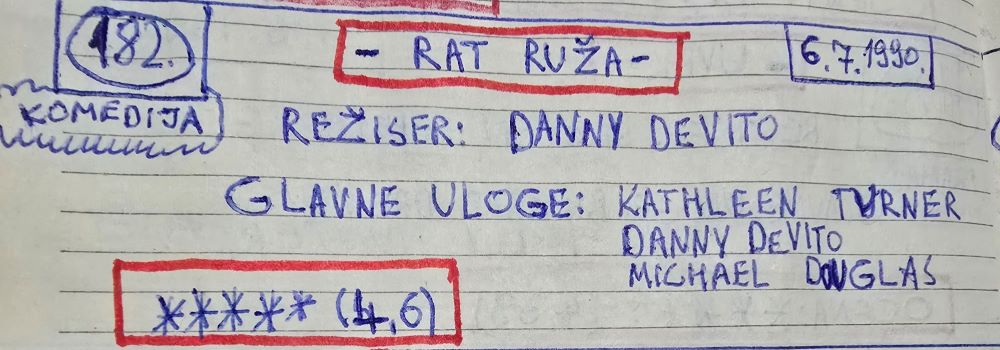 182.
- RAT RUŽA -
6.7.1990.
KOMEDIJA
REŽISER: DANNY DEVITO
GLAVNE ULOGE: KATHLEEN TURNER
DANNY DeVITO
MICHAEL DOUGLAS
***** (4,6)